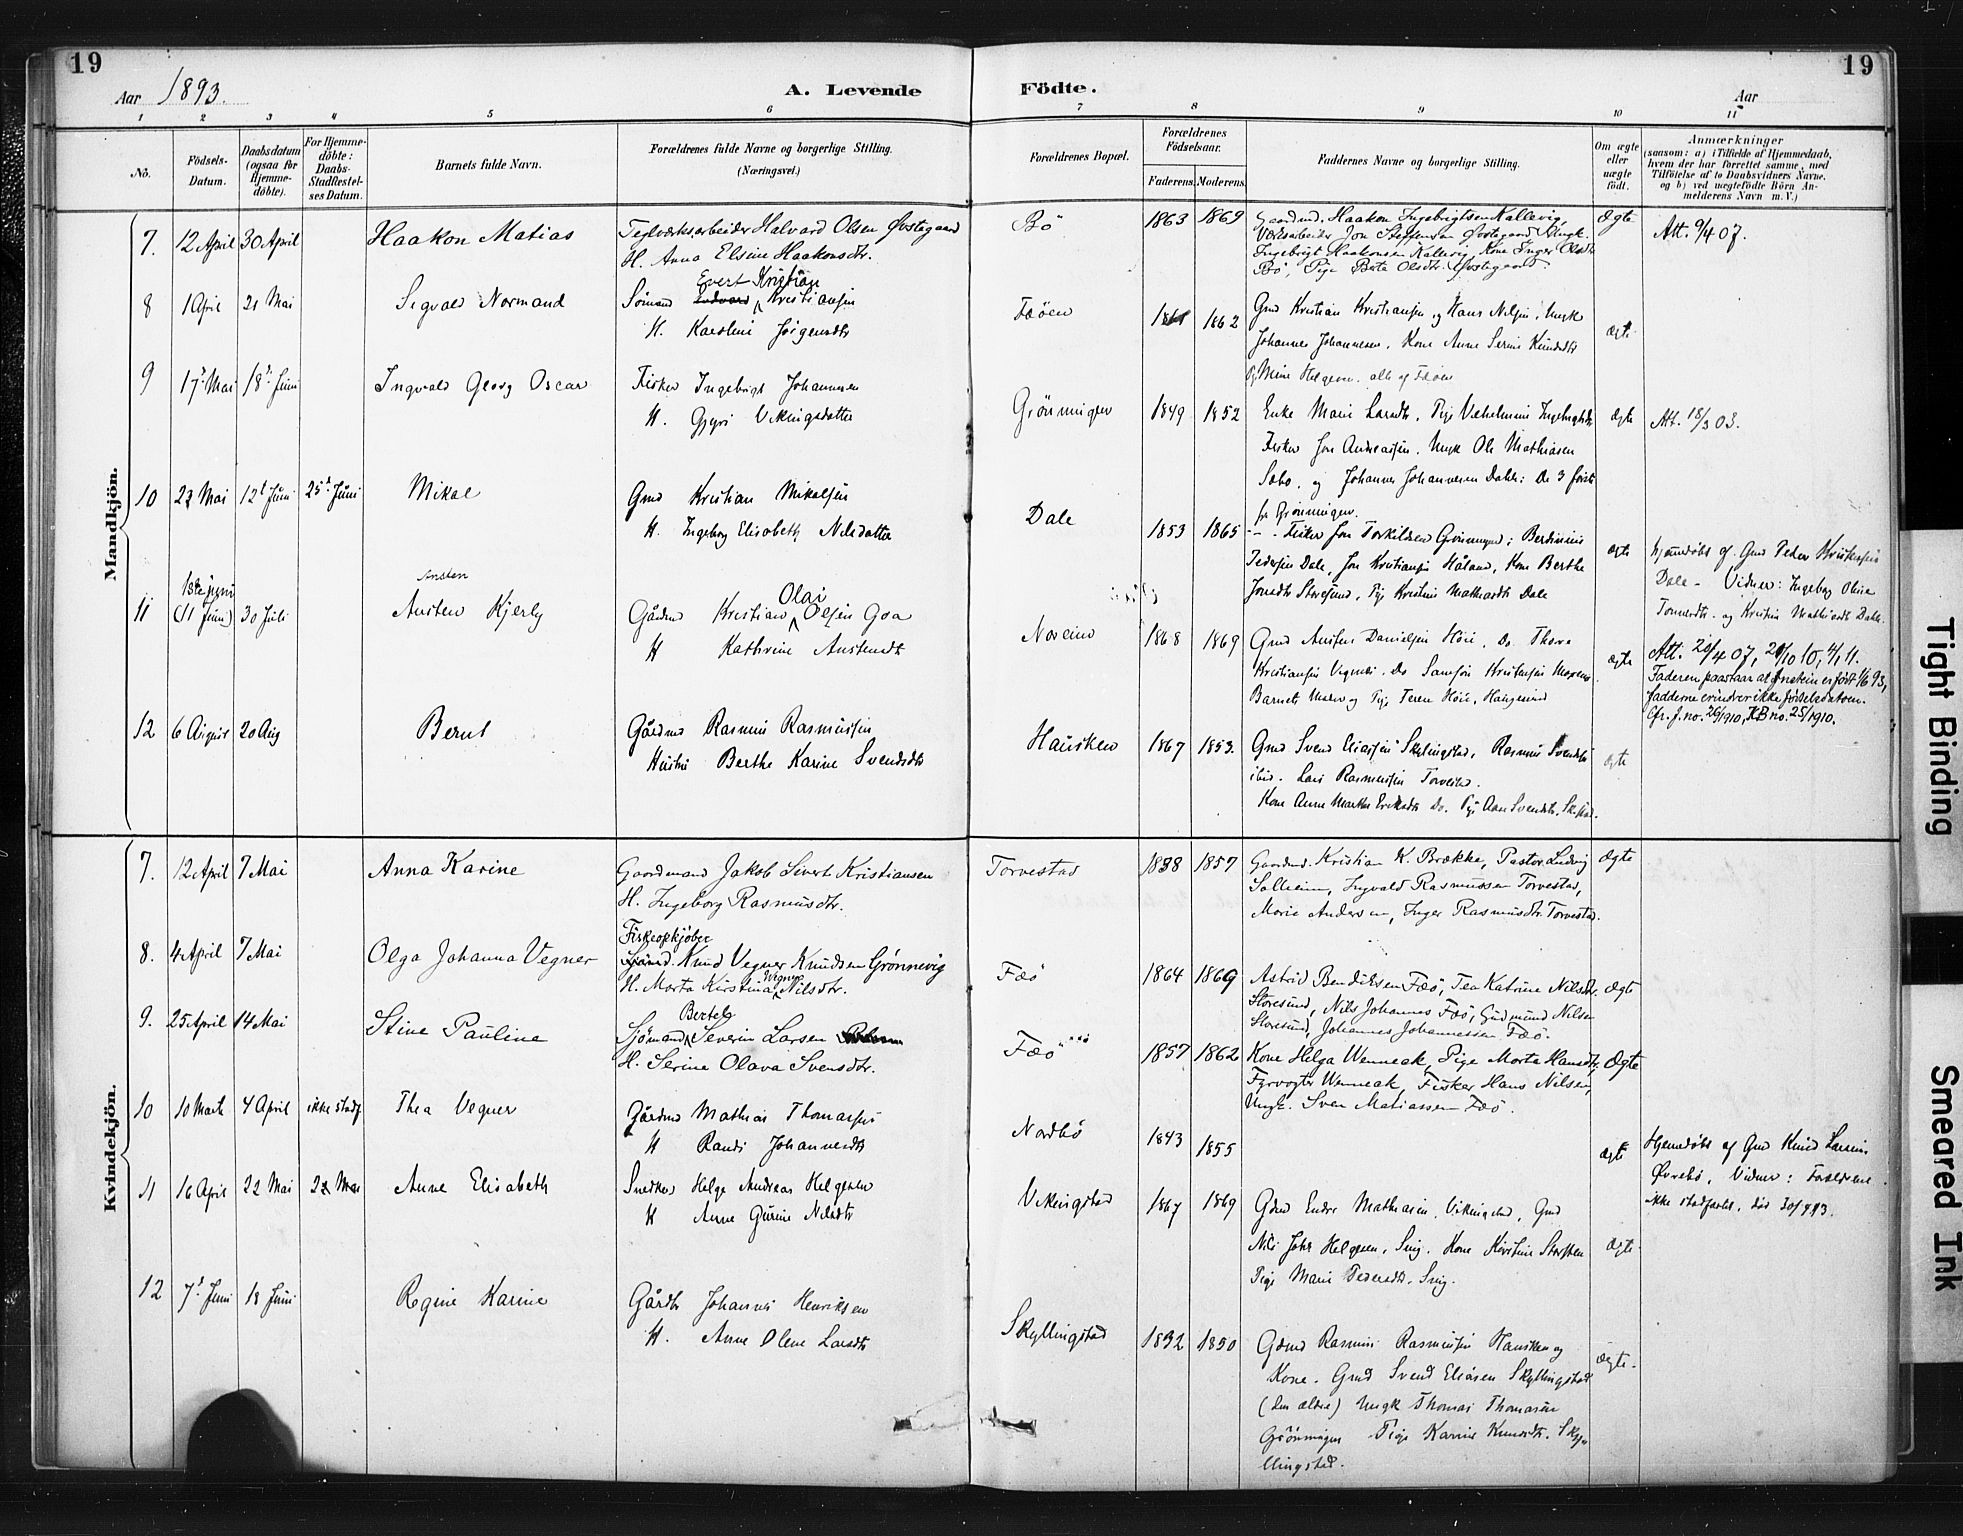 19
Aar 1893.
A. Levende Födte.
Aar
19
1 2 3 4 5 6 7 8 9 10 11
No.
Födsels-Datum.
Daabsdatum (ogsaa for Hjemme-döbte).
For Hjemme-döbte: Daabs-Stadfæstel-ses Datum.
Barnets fulde Navn.
Forældrenes fulde Navne og borgerlige Stilling. (Næringsvei.)
Forældrenes Bopæl.
Forældrenes Födselsaar.
Faderens. Moderens.
Faddernes Navne og borgerlige Stilling.
Om ægte eller uægte födt.
Anmærkninger
(saasom: a) i Tilfælde af Hjemmedaab,
hvem der har forrettet samme, med
Tilföielse af to Daabsvidners Navne,
og b) ved uægtefödte Börn An-
melderens Navn m. V.)
Mandkjön.
7. 12 April 30 April Haakon Matias
Teglværksarbeider Halvard Olsen Østegaard
H. Anna Elsine Haakonsdtr.
Bö 1863 1869
Gaardmd. Haakon Ingebrigtsen Kallevig,
Værksarbeider Jon Steffensen Østegaard, Ungk.
Ingebrigt Haakonsen Kallevig, Kone Inger Olsdtr.
Bö, Pige Berta Olsdtr. Østegaard.
Ægte
Att. 9/4 07.
8 1 April 21 Mai Sigvald Normand
Evert Kristian
Sömand Kristiansen
H. Karoline Jörgensdtr
Fæöen 1862
Gmd Kristian Kristiansen og Hans Nilsen, Ungk
Johannes Johannesen, Kone Anne Serine Knudsdtr
Pg Mine Helgesen. alle af Fæöen
Ægte
9 17 Mai 18 Juni Ingvald Georg Oscar
Fisker Ingebrigt Johannesen
H. Gyri Vikingsdatter
Grönningen 1849 1852
Enke Marie Larsdtr, Pige Vilhelmine Ingebrigtsdtr
Fisker Jon Andreassen, Ungk Ole Mathiasen
Sæbö, og Johannes Johannesen Dahle: De 3 först
fr Grönningen.
Ægte
Att. 18/3 03.
10 23 Mai 12 Juni 25 Juni Mikal
Gmd Kristian Mikalsen
H. Ingeborg Elisabeth Nilsdatter
Dale 1853 1865
Fisker Jon Torkildsen Grönningen; Berdinius
Pedersen Dale, Jon Kristiansen Håland, Kone Berthe
Jonsdtr Storesund, Pig Kristine Mathiasdtr Dale
ægte
hjemdöbt af Gmd Peder Kristensen
Dale - Vidner: Ingeborg Oline
Tormodsdtr. og Kristine Mathiasdtr Dahle.
11 1ste juni (11 Juni) 30 Juli
Ansten
Austen Kjerly
Olai
Gårdmd Kristian Olsen Goa
H Kathrine Austensdtr
Noreim 1868 1869
Gmd Austen Danielsen Höie, Do Thore
Kristiansen Vignæs. Do Samson Kristensen
Barnets Moder og Pig Höie, Haugesund
ægte
Att. 20/4 07, 21/10 10, 4/1 11.
Faderen paastaar at Anstein er født 1/6 93,
fadderne erindrer ikke fødselsdatoen.
Cfr. J. no. 26/1910, KB no. 25/1910.
12 6 August 20 Aug Bernt
Gårdmd Rasmus Rasmussen
Hustru Berthe Karine Svendsdtr
Hausken 1867 1853.
Gmd Svend Eliassen Skyllingstad, Rasmus Svendsen
ibid. Lars Rasmussen Torvestad.
Kone Anne Marthe Eriksdtr Do. Pige Ane Svendsdtr,
ægte
Kvindekjön.
7. 12 April 7 Mai Anna Karine
Gaardmand Jakob Sivert Kristiansen
H. Ingeborg Rasmusdtr.
Torvestad 1838 1857
Gaardmd. Kristian K. Brække, Pastor Ludvig
Solheim, Ingvald Rasmussen Torvestad,
Marie Andersen, Inger Rasmusdtr. Torvestad.
Ægte
8. 4 April 7 Mai Olga Johanna Vegner
Fiskeopkjøber
Knud Vegner Knudsen Grønnevig
H. Marta Kirstina Vegner Nilsdtr.
Fæö 1864 1869
Astrid Bendiksen Fæö, Tea Katrine Nilsdtr.
Storesund, Nils Johannes Fæö, Gudmund Nilsen
Storesund, Johannes Johannessen Fæö.
Ægte
9. 25 April 14 Mai Stine Pauline
Bertel
Sjömand Severin Larsen
H. Serine Olava Svensdtr.
Fæö 1857 1862
Kone Helga Wenneak, Pige Marta Hansdtr,
Fyrvogter Wenneak, Fisker Hans Nilsen,
Ungk. Sven Matiassen Fæö.
Ægte
10 10 Marts 4 April ikke stadf Thea Vegner
Gårdmd Mathias Thomassen
H Randi Johannesdtr
Nordbö 1843 1855
ægte
Hjemdöbt af Gmd Knud Larsen
Øvrebö, Vidner: Forældrene.
ikke stadfæstet, död 30/4 93.
11 16 April 22 Mai 22 Mai Anne Elisabeth
Snedker Helge Andreas Helgesen
H Anne Gurine Nilsdtr
Vikingstad 1867 1869
Gdmd Endre Mathiasen Vikingstad, Gmd
Nils Johs Helgesen, Snig. Kone Kirstine
Pige Marie Pedersdtr. Snig.
Ægte
12 7 Juni 18 Juni Regine Karine
Gårdbr Johannes Henriksen
H. Anne Olene Larsdtr
Skyllingstad 1832 1850
Gdmd Rasmus Rasmussen Hausken og
Kone. Gmd Svend Eliasen Skyllingstad
(den ældre) Ungk Thomas Thomassen
Grönningen Pige Karine Knudsdtr. Sky-
llingstad.
Ægte.
Tight Binding
Smeared Ink